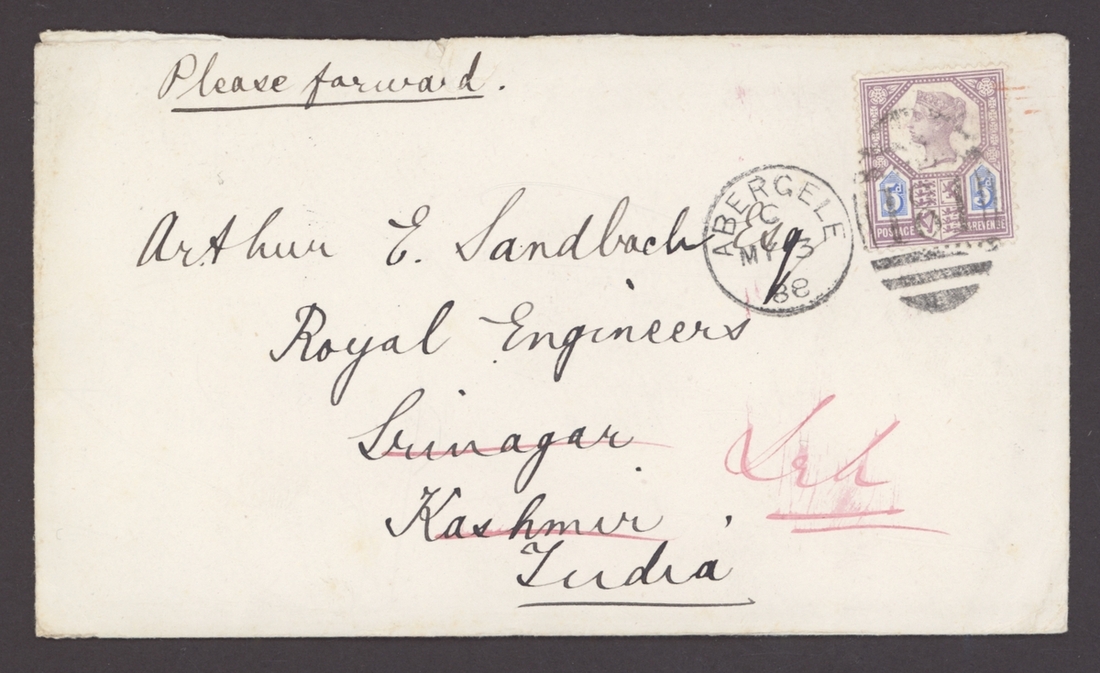 Please forward.
5d 5d
POSTAGE & REVENUE
ABERGELE
C
MY 3
88
Arthur E. Sandbach Esq
Royal Engineers
Srinagar
Kashmir
India